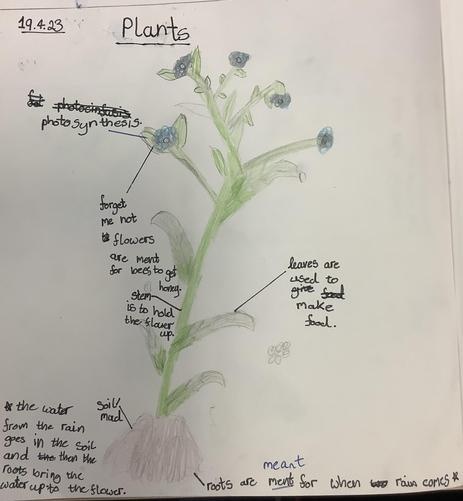 19.4.23
Plants
photosinfisis
photosynthesis.
forget
me not
flowers
are ment
for bees to get
honey.
stem
is to hold
the flower
up.
leaves are
used to
give food
make
food.
soil/
mud
* the water
from the rain
goes in the soil
and the then the
roots bring the
water up to the flower.
meant
roots are ment for when rain comes *